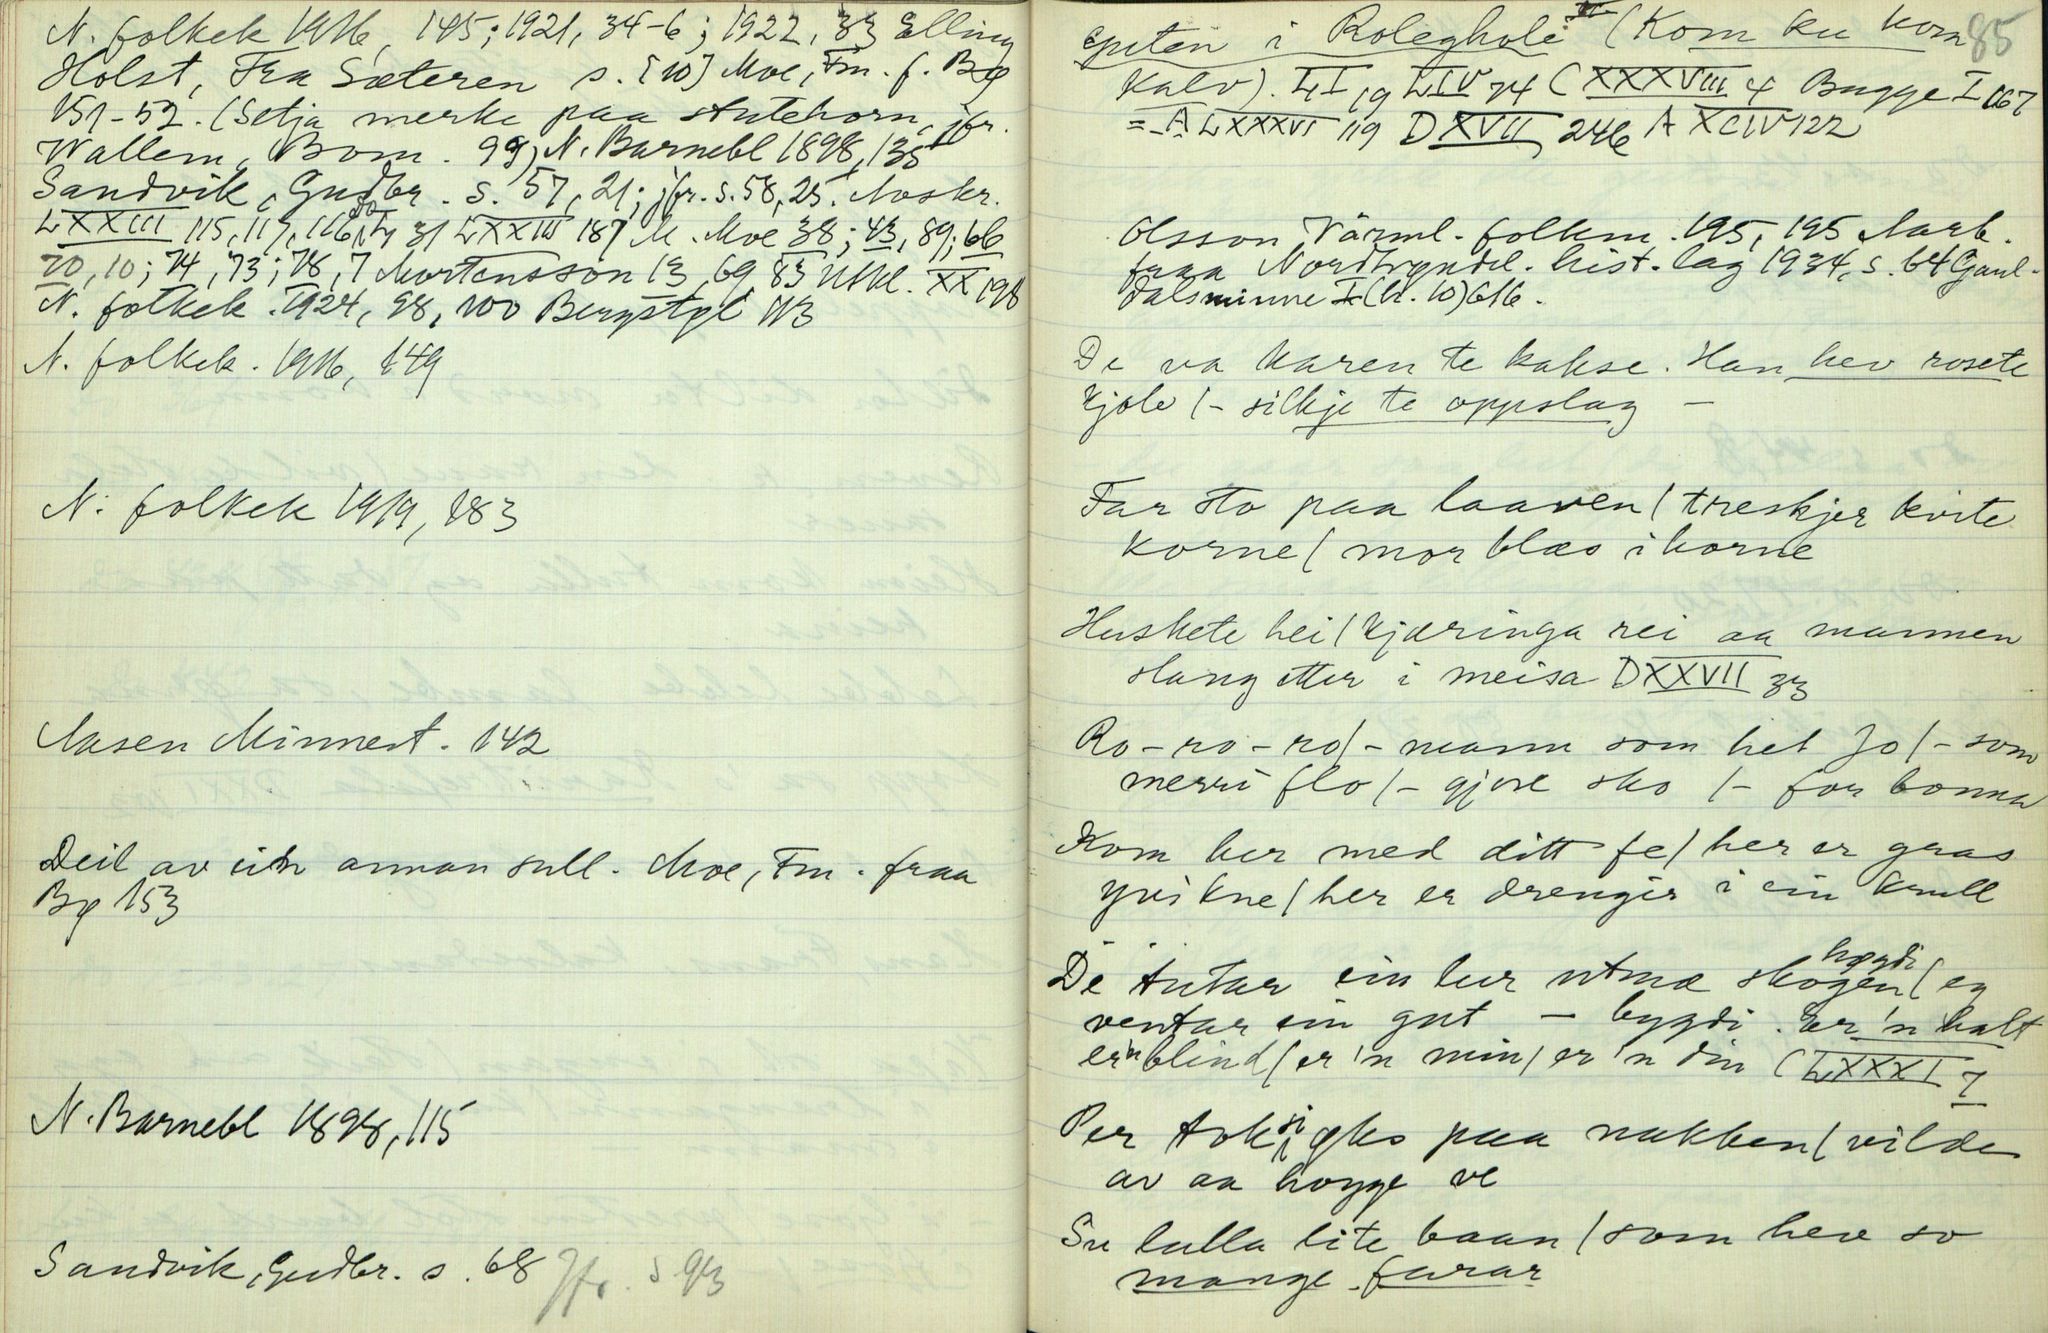 N. folkek 1916, 145; 1921, 34-6; 1922, 33 Elling
Holst, Fra Sæteren s. [10] Moe, Fm. f. Bø
151-52. (Setja merke paa Antehorn, jfr.
Wallem, Bom. 99) N. Barnebl 1898, 135
Sandvik, Gudbr. s. 57, 21; jfr. s. 58, 25. Noskr.
LXXIII 115, 117, 116, 31 LXXIII 187 M. Moe 38; 43, 89; 66
70, 10; 74, 73; 78, 7 Mortensson 13, 69, 83 XX 198
N. folkek. 1924, 98, 100 Bergstøl 113
N. folkek. 1916, 149
N. folkek 1919, 183
Aasen Minnest. 142
Deil av ein annan sull. Moe, Fm. fraa
Bø 153
N. Barnebl 1898, 115
Sandvik, Gudbr. s. 68 Jfr. s 93
85
guten i Roleghole (Kom ku kom
Kalv). LI 19 LIV 74 (XXXVIII 4 Bugge I 167
= A LXXXVI 119 D XVII 246 A XCIV 122
Olsson Värml. folkm. 195, 195 Aarb.
fraa Nordtrøndel. hist. lag 1934, s. 64 Gaul-
dalsminne I (h. 10) 616.
De va karen te kakse. Han hev rosete
kjole /- silkje te oppslag -
Far sto paa laaven / treskjer kvite
korne / mor blæs i horne
Huskete hei / kjæringa rei aa mannen
slang etter i meisa DXXVII 33
Ro-ro-ro /- mann som het Jo /- som
merri flo /- gjore sko /- for bonna
Kom her med ditt fe / her er gras
yvi kne / her er drengir i ein krull
høgdi
De tutar ein lur utmæ skogen / eg
ventar ein gut - bygdi. Er 'n halt
er 'n blind / er 'n min / er 'n din (LXXXI 7
Per tok si øks paa nakken / vilde
av aa hogge ve
Su lulla lite baan / som heve so
mange furar